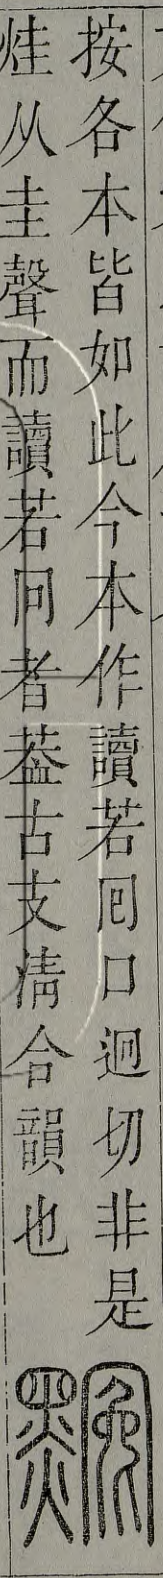 按各本皆如此今本作讀若囘口迥切非是
烓从圭聲而讀若冋者葢古支淸合韻也